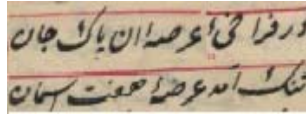 در فراخی عرصهٔ آن پاک جان
تنگ آمد عرصهٔ هفت آسمان